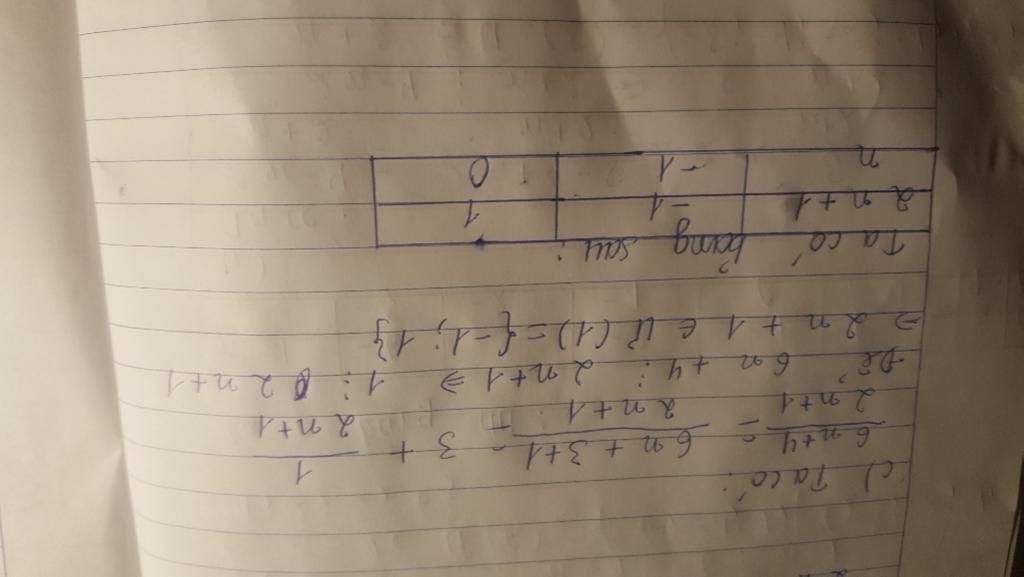 c) Ta có:
6n+4/2n+1 = 6n+3+1/2n+1 = 3 + 1/2n+1
Để 6n+4 ⋮ 2n+1 ⇒ 1 ⋮ 2n+1
⇒ 2n+1 ∈ Ư(1) = {-1; 1}
Ta có bảng sau:
2n+1 -1 1
n -1 0